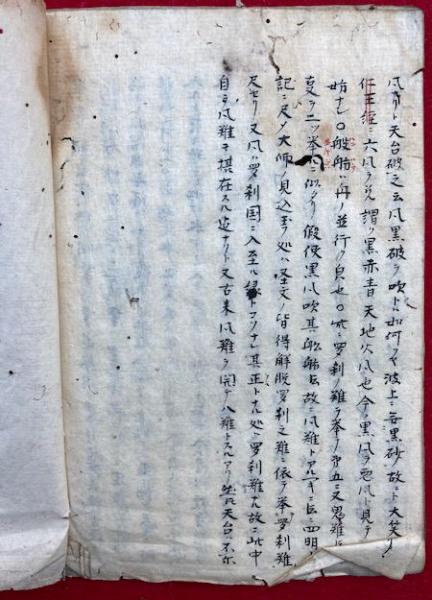 風ナリト天台破之云風黒破ヲ吹トハ如何ソヤ波上ニ無黒砂故ニト大笑ヘリ
仁王経ニ六風ヲ説謂ク黒赤青天地火風也今ノ黒風ヲ悪風ト見テ
始ナシ〇船舫ハ舟ノ並行ノ皃也〇此ニ羅刹ノ難ヲ挙ケ第五ニ又鬼難ニ
夏ヲ二ツ挙ルニ似タリ假使黒風吹其船舫云故ニ風難トアルヘキニ云ニ四明ノ
記ニ尺ノ大師ノ見込玉フ処ハ経文ノ皆得解脱羅刹之難ニ依テ挙羅刹難
尺セリ又風ハ羅刹国ニ入至ル縁トコソナレ其正トナル処ニ羅刹難ナル故ニ此中
自ラ風難ヲ摂在スル迠ナリト又古来風難ヲ開テ八難トスルアリ然ルニ天台不尓